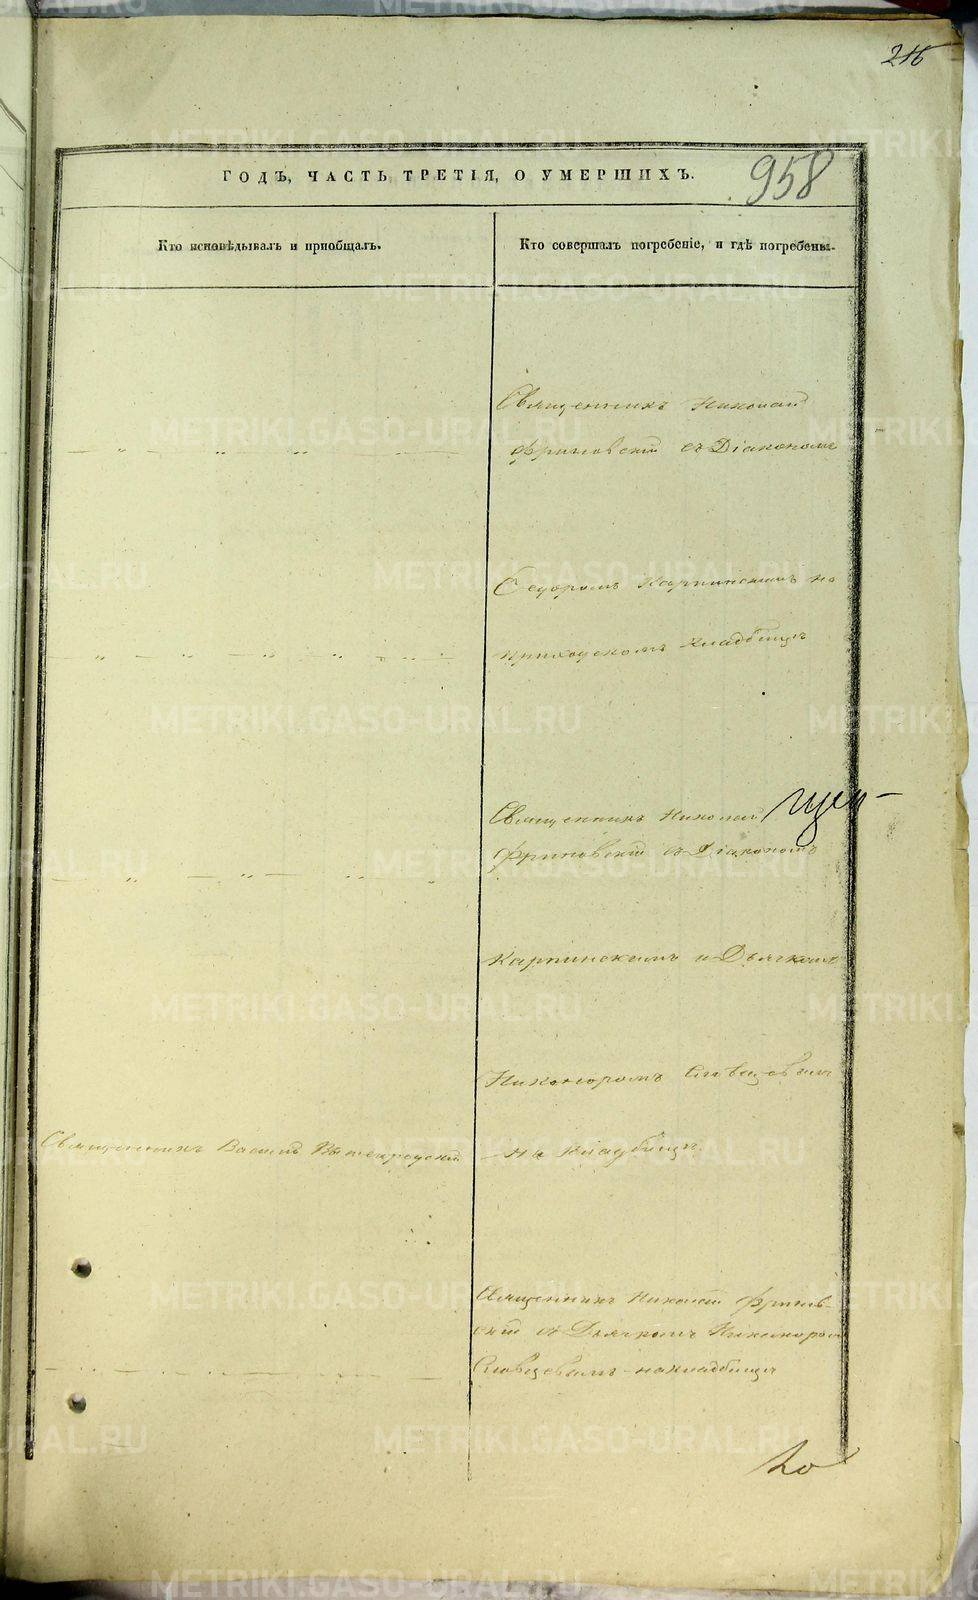 216
ГОДЪ, ЧАСТЬ ТРЕТІЯ, О УМЕРШИХЪ.
958
Кто исповѣдывалъ и пріобщалъ.
Кто совершалъ погребеніе, и гдѣ погребены.
Священникъ Николай
Фриновскій съ Діакономъ
Ѳедоромъ Карпинскимъ на
приходскомъ кладбищѣ
Священникъ Николай
Фриновскій съ Діакономъ
Карпинскимъ и Дьячкомъ
Никоноромъ Словцовымъ
на кладбищѣ
Священникъ Василій
Священникъ Николай Фринов-
скій съ Дьячкомъ Никаноромъ
Словцовымъ на кладбищѣ
METRIKI.GASO-URAL.RU